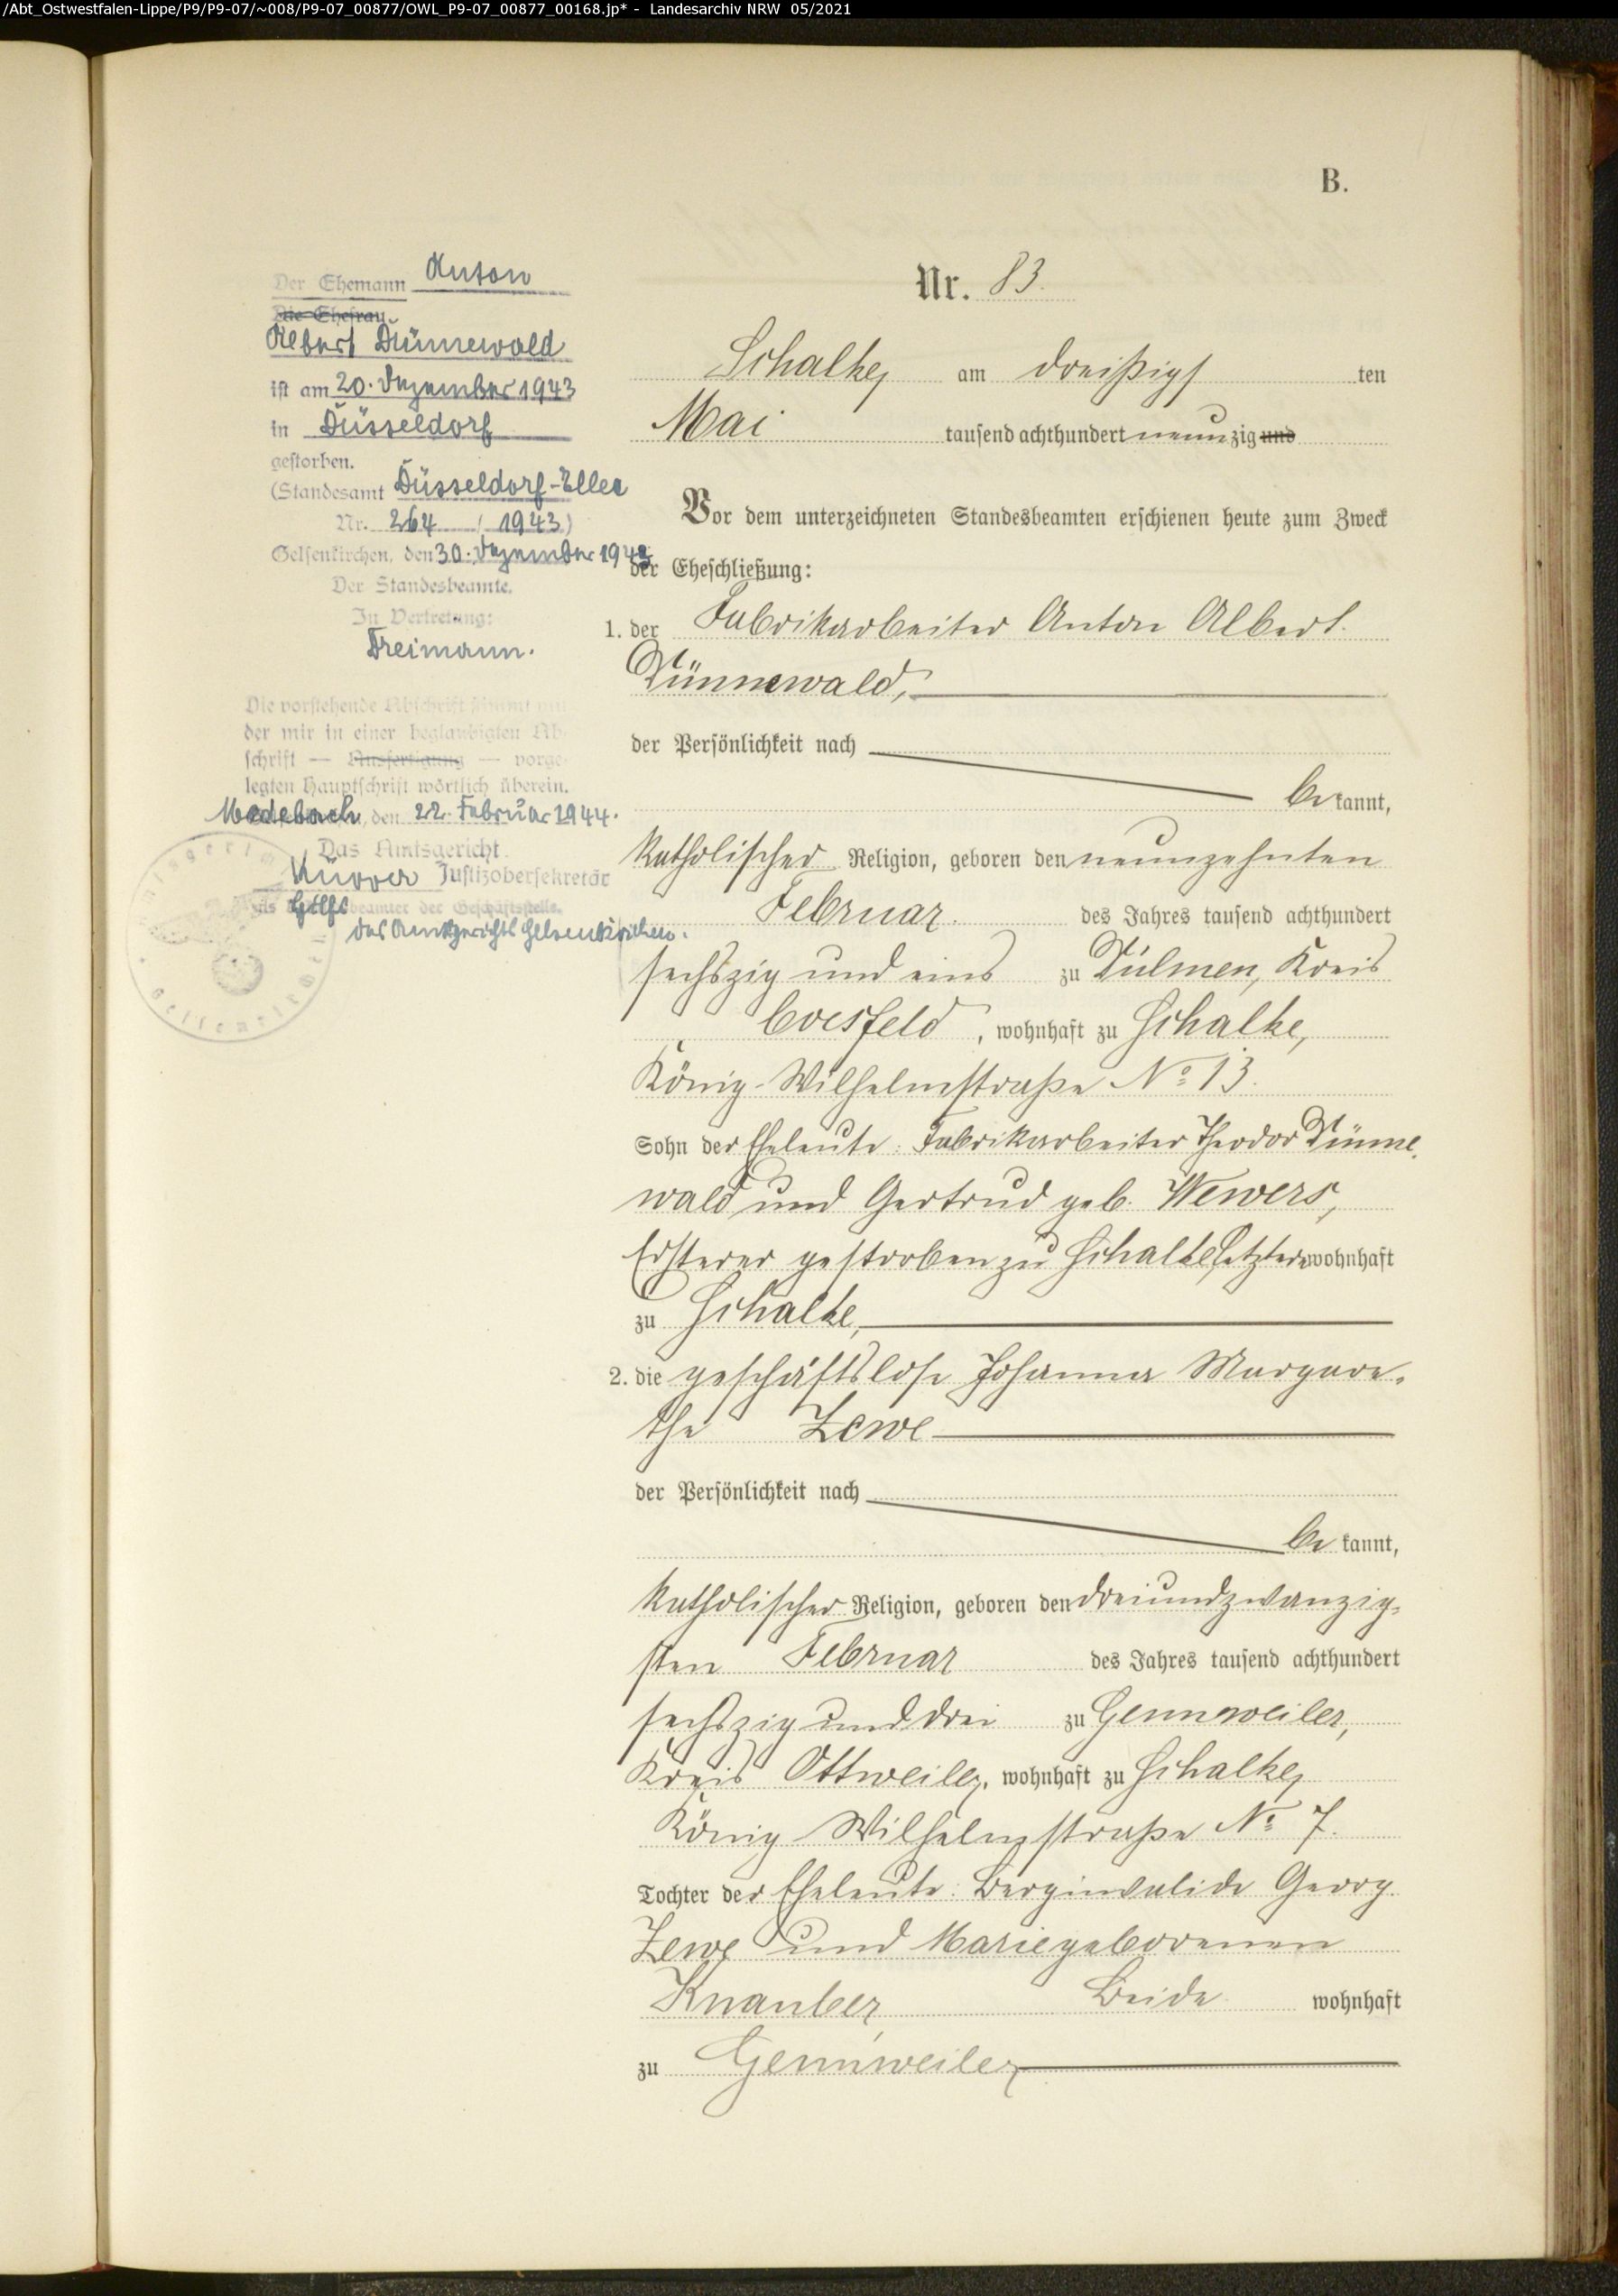 /Abt_Ostwestfalen-Lippe/P9/P9-07/~008/P9-07_00877/OWL_P9-07_00877_00168.jp* - Landesarchiv NRW 05/2021
B.
Nr. 83.
Schalke, am dreißigsten
Mai tausend achthundert neunzig und
Vor dem unterzeichneten Standesbeamten erschienen heute zum Zweck
der Eheschließung:
1. der Fabrikarbeiter Anton Albert
Dünnewald,
der Persönlichkeit nach
bekannt,
katholischer Religion, geboren den neunzehnten
Februar des Jahres tausend achthundert
sechszig und eins zu Dülmen, Kreis
Coesfeld, wohnhaft zu Schalke,
König-Wilhelmstraße No 13.
Sohn der Eheleute: Fabrikarbeiter Theodor Dünne-
wald und Gertrud geb. Wewers,
Ersterer gestorben zu Schalke, Letztere wohnhaft
zu Schalke,
2. die geschäftslose Johanna Margare-
the Zewe
der Persönlichkeit nach
bekannt,
katholischer Religion, geboren den dreiundzwanzig-
sten Februar des Jahres tausend achthundert
sechszig und drei zu Gennweiler,
Kreis Ottweiler, wohnhaft zu Schalke,
König Wilhelmstraße No 7.
Tochter der Eheleute: Berginvalide Georg
Zewe und Marie geborenen
Knauber, Beide wohnhaft
zu Gennweiler
Der Ehemann Anton
Die Ehefrau
Albert Dünnewald
ist am 20. Dezember 1943
in Düsseldorf
gestorben.
(Standesamt Düsseldorf-Eller
Nr. 264 / 1943)
Gelsenkirchen, den 30. Dezember 1943
Der Standesbeamte.
In Vertretung:
Dreimann.
Die vorstehende Abschrift stimmt mit
der mir in einer beglaubigten Ab-
schrift — Ausfertigung — vorge-
legten Hauptschrift wörtlich überein.
Medebach, den 22. Februar 1944.
Das Amtsgericht
Justizobersekretär
als beamter der Geschäftsstelle.
des Amtsgerichts Gelsenkirchen.